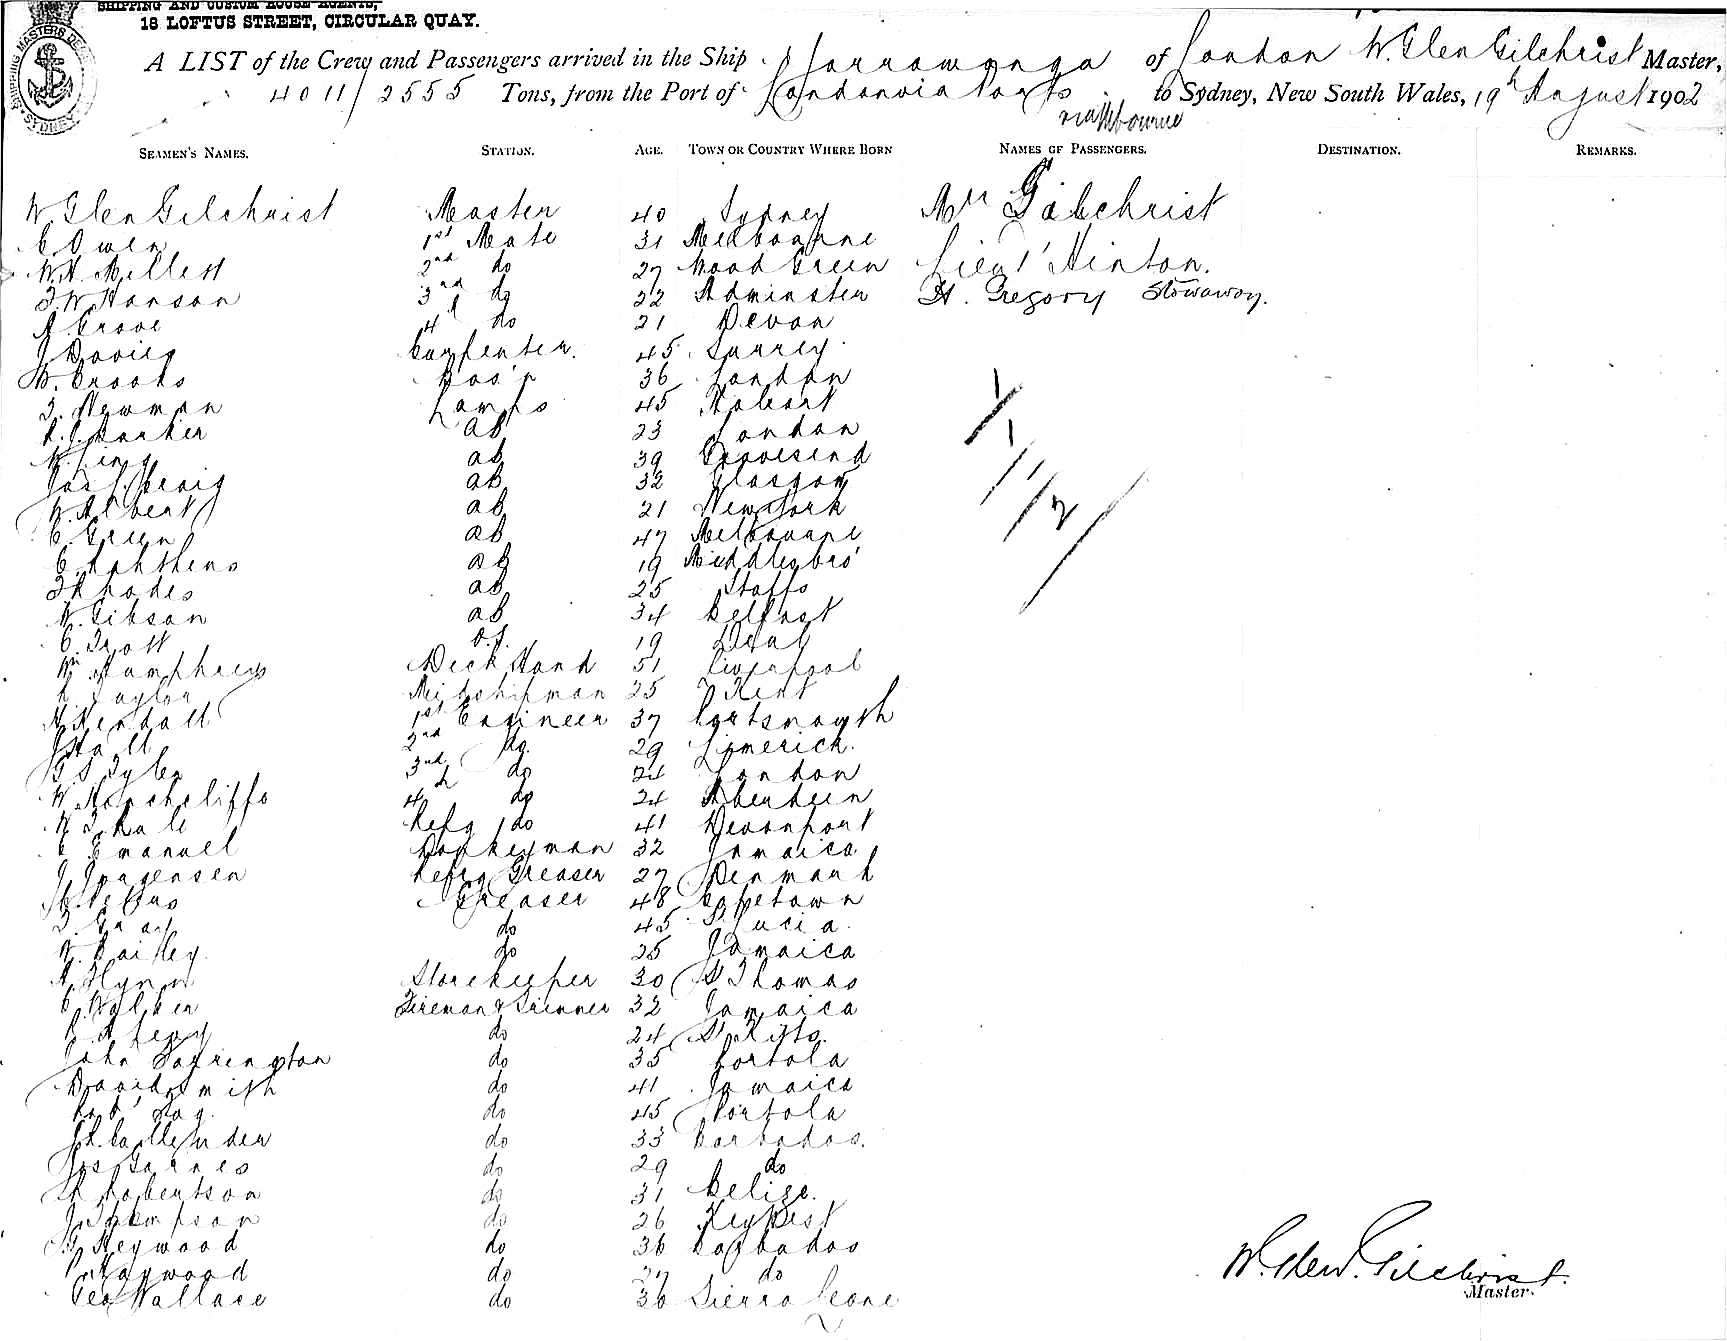 SHIPPING AND CUSTOM HOUSE AGENTS,
18 LOFTUS STREET, CIRCULAR QUAY.
SHIPPING MASTERS SYDNEY
A LIST of the Crew and Passengers arrived in the Ship Yarrawonga of London W. Glen Gilchrist Master,
4011/2555 Tons, from the Port of London via Ports to Sydney, New South Wales, 19th August 1902
via Melbourne
SEAMEN'S NAMES. STATION. AGE. TOWN OR COUNTRY WHERE BORN NAMES OF PASSENGERS. DESTINATION. REMARKS.
W Glen Gilchrist Master 40 Sydney Mrs Gilchrist
C Owen 1st Mate 31 Melbourne Lieut Hinton.
W.H. Millett 2nd do 27 Wood Green H. Gregory Stowaway.
F W Hanson 3rd do 22 Axminster
A Grove 4th do 21 Devon
J Davies Carpenter. 45 Surrey
W. Crooks Bos'n 36 London
F. Newman Lamps 45 Hobart
A. J. Barker ab 23 London
W. King ab 39 Gravesend
Jas Craig ab 32 Glasgow
W. Albert ab 21 New York
C. Green ab 47 Melbourne
C. ab 19 Middlesbro'
F Rhodes ab 25 Staffs
W. Gibson ab 34 Belfast
C. Trott o.s. 19 Deal
Wm Humphreys Deck Hand 51 Liverpool
Taylor Midshipman 25 Kent
H Kendall 1st Engineer 37 Portsmouth
J Hall 2nd do 29 Limerick.
G S Tyler 3rd do 24 London
W Hinchcliffe 4th do 24 Aberdeen
W J Kale Refg do 41 Devonport
C Emanuel Donkeyman 32 Jamaica
J Jorgensen Refrg Greaser 27 Denmark
Greaser 48 Capetown
J. Gray do 45 St Lucia.
W. Bailey. do 25 Jamaica
A Flynn Storekeeper 30 St Thomas
C. Walker Fireman & Trimmer 32 Jamaica
do 24 St Kitts.
John Farrington do 35 Tortola
David Smith do 41 Jamaica
Robt do 45 Tortola
Callender do 33 Barbados.
Jos Garnes do 29 do
Robertson do 31 Belize.
J. Thompson do 26 Key West
G Heywood do 36 Barbados
Haywood do 37 do
Geo Wallace do 36 Sierra Leone
W. Glen. Gilchrist.
Master.